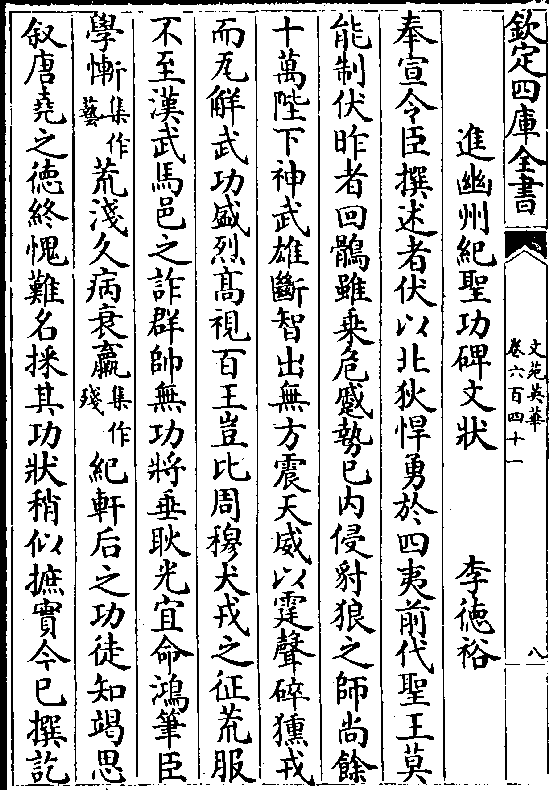 欽定四庫全書
文苑英華
卷六百四十一
八
進幽州紀聖功碑文狀
李德裕
奉宣令臣撰述者伏以北狄悍勇於四夷前代聖王莫
能制伏昨者回鶻雖乗危蹙勢已内侵豺狼之師尚餘
十萬陛下神武雄斷智出無方震天威以霆聲碎獯戎
而瓦解武功盛烈髙視百王豈比周穆犬戎之征荒服
不至漢武馬邑之詐群帥無功將垂耿光宜命鴻筆臣
學慚集作藝荒淺久病衰羸集作殘紀軒后之功徒知竭思
叙唐堯之徳終愧難名採其功狀稍似摭實今已撰訖